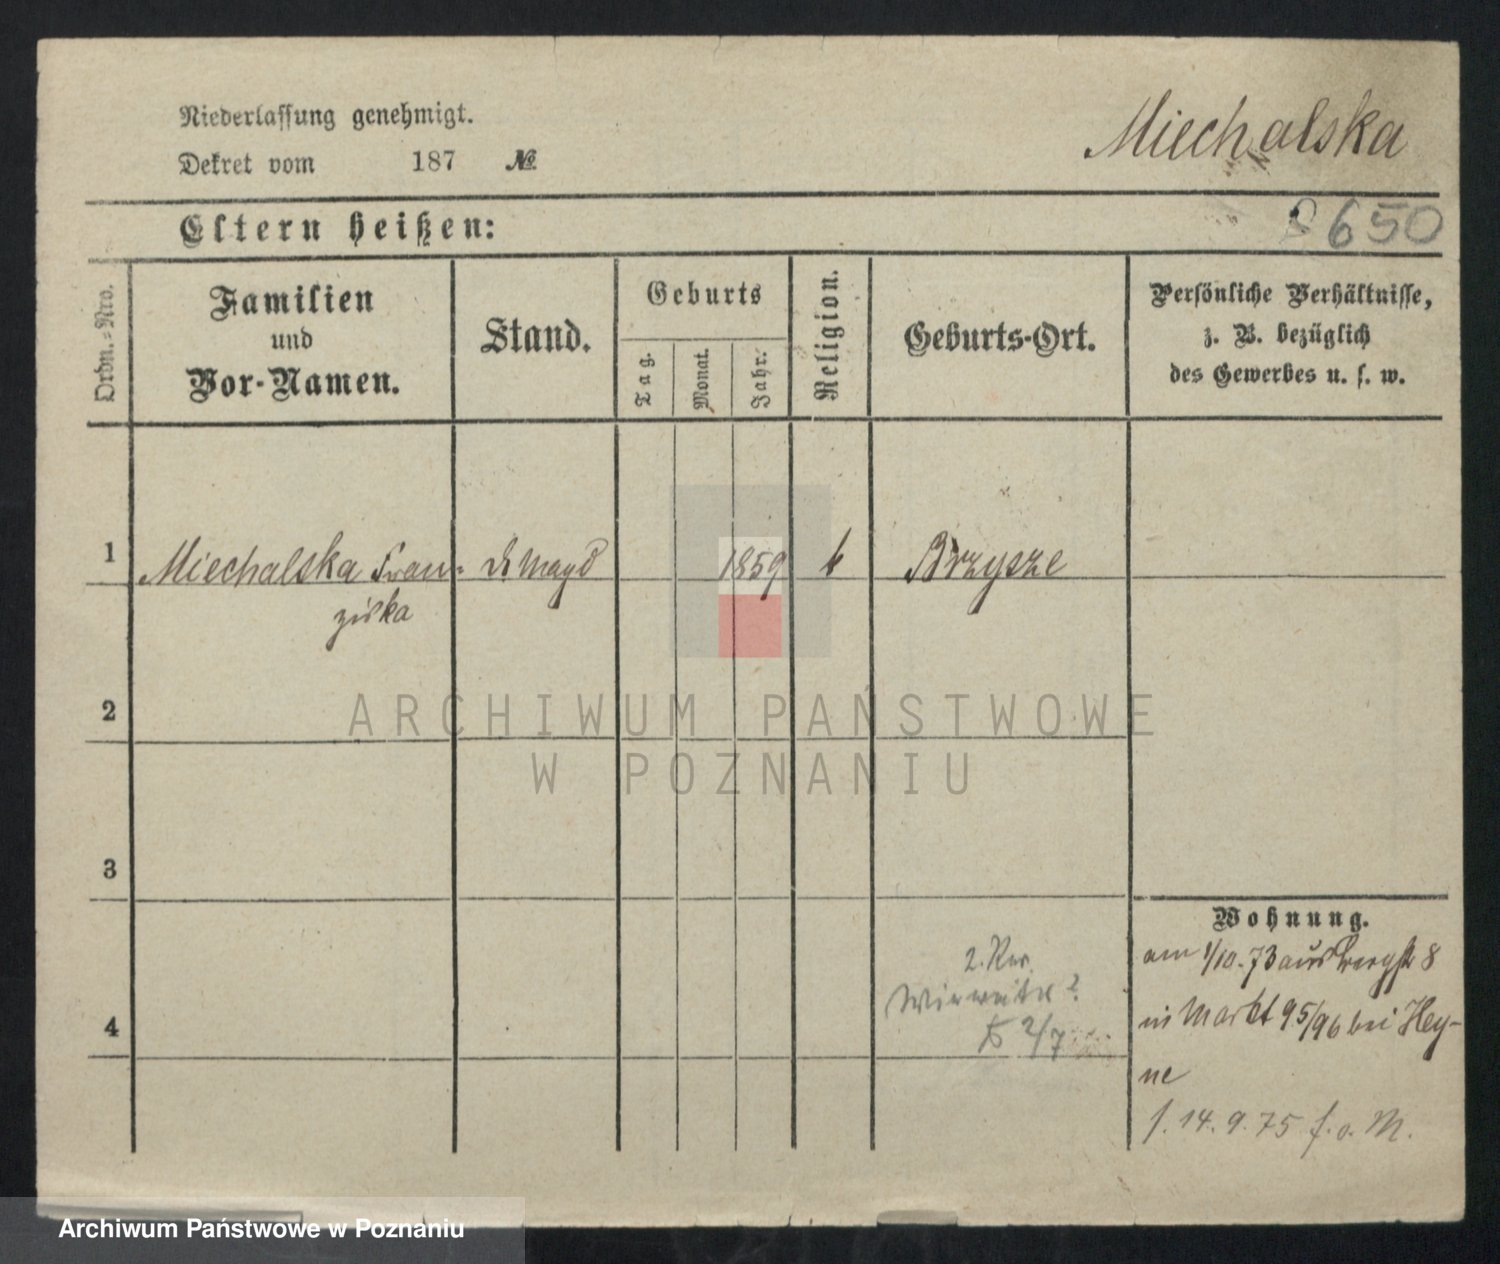 Niederlassung genehmigt.
Dekret vom 187 №
Miechalska
Eltern heißen:
8650
Ordn.-Nro.
Familien
und
Vor-Namen.
Stand.
Geburts
Tag.
Monat.
Jahr.
Religion.
Geburts-Ort.
Persönliche Verhältnisse,
z. B. bezüglich
des Gewerbes u. s. w.
1 Miechalska Fran- Magd 1859 k Brzysze
ziska
2
3
4
Wohnung.
am 1/10.73 aus Bergstr 8
in Markt 95/96 bei Hey-
ne
f. 14.9.75 f. o. M.
2. Rev.
2/7
ARCHIWUM PAŃSTWOWE
W POZNANIU
Archiwum Państwowe w Poznaniu